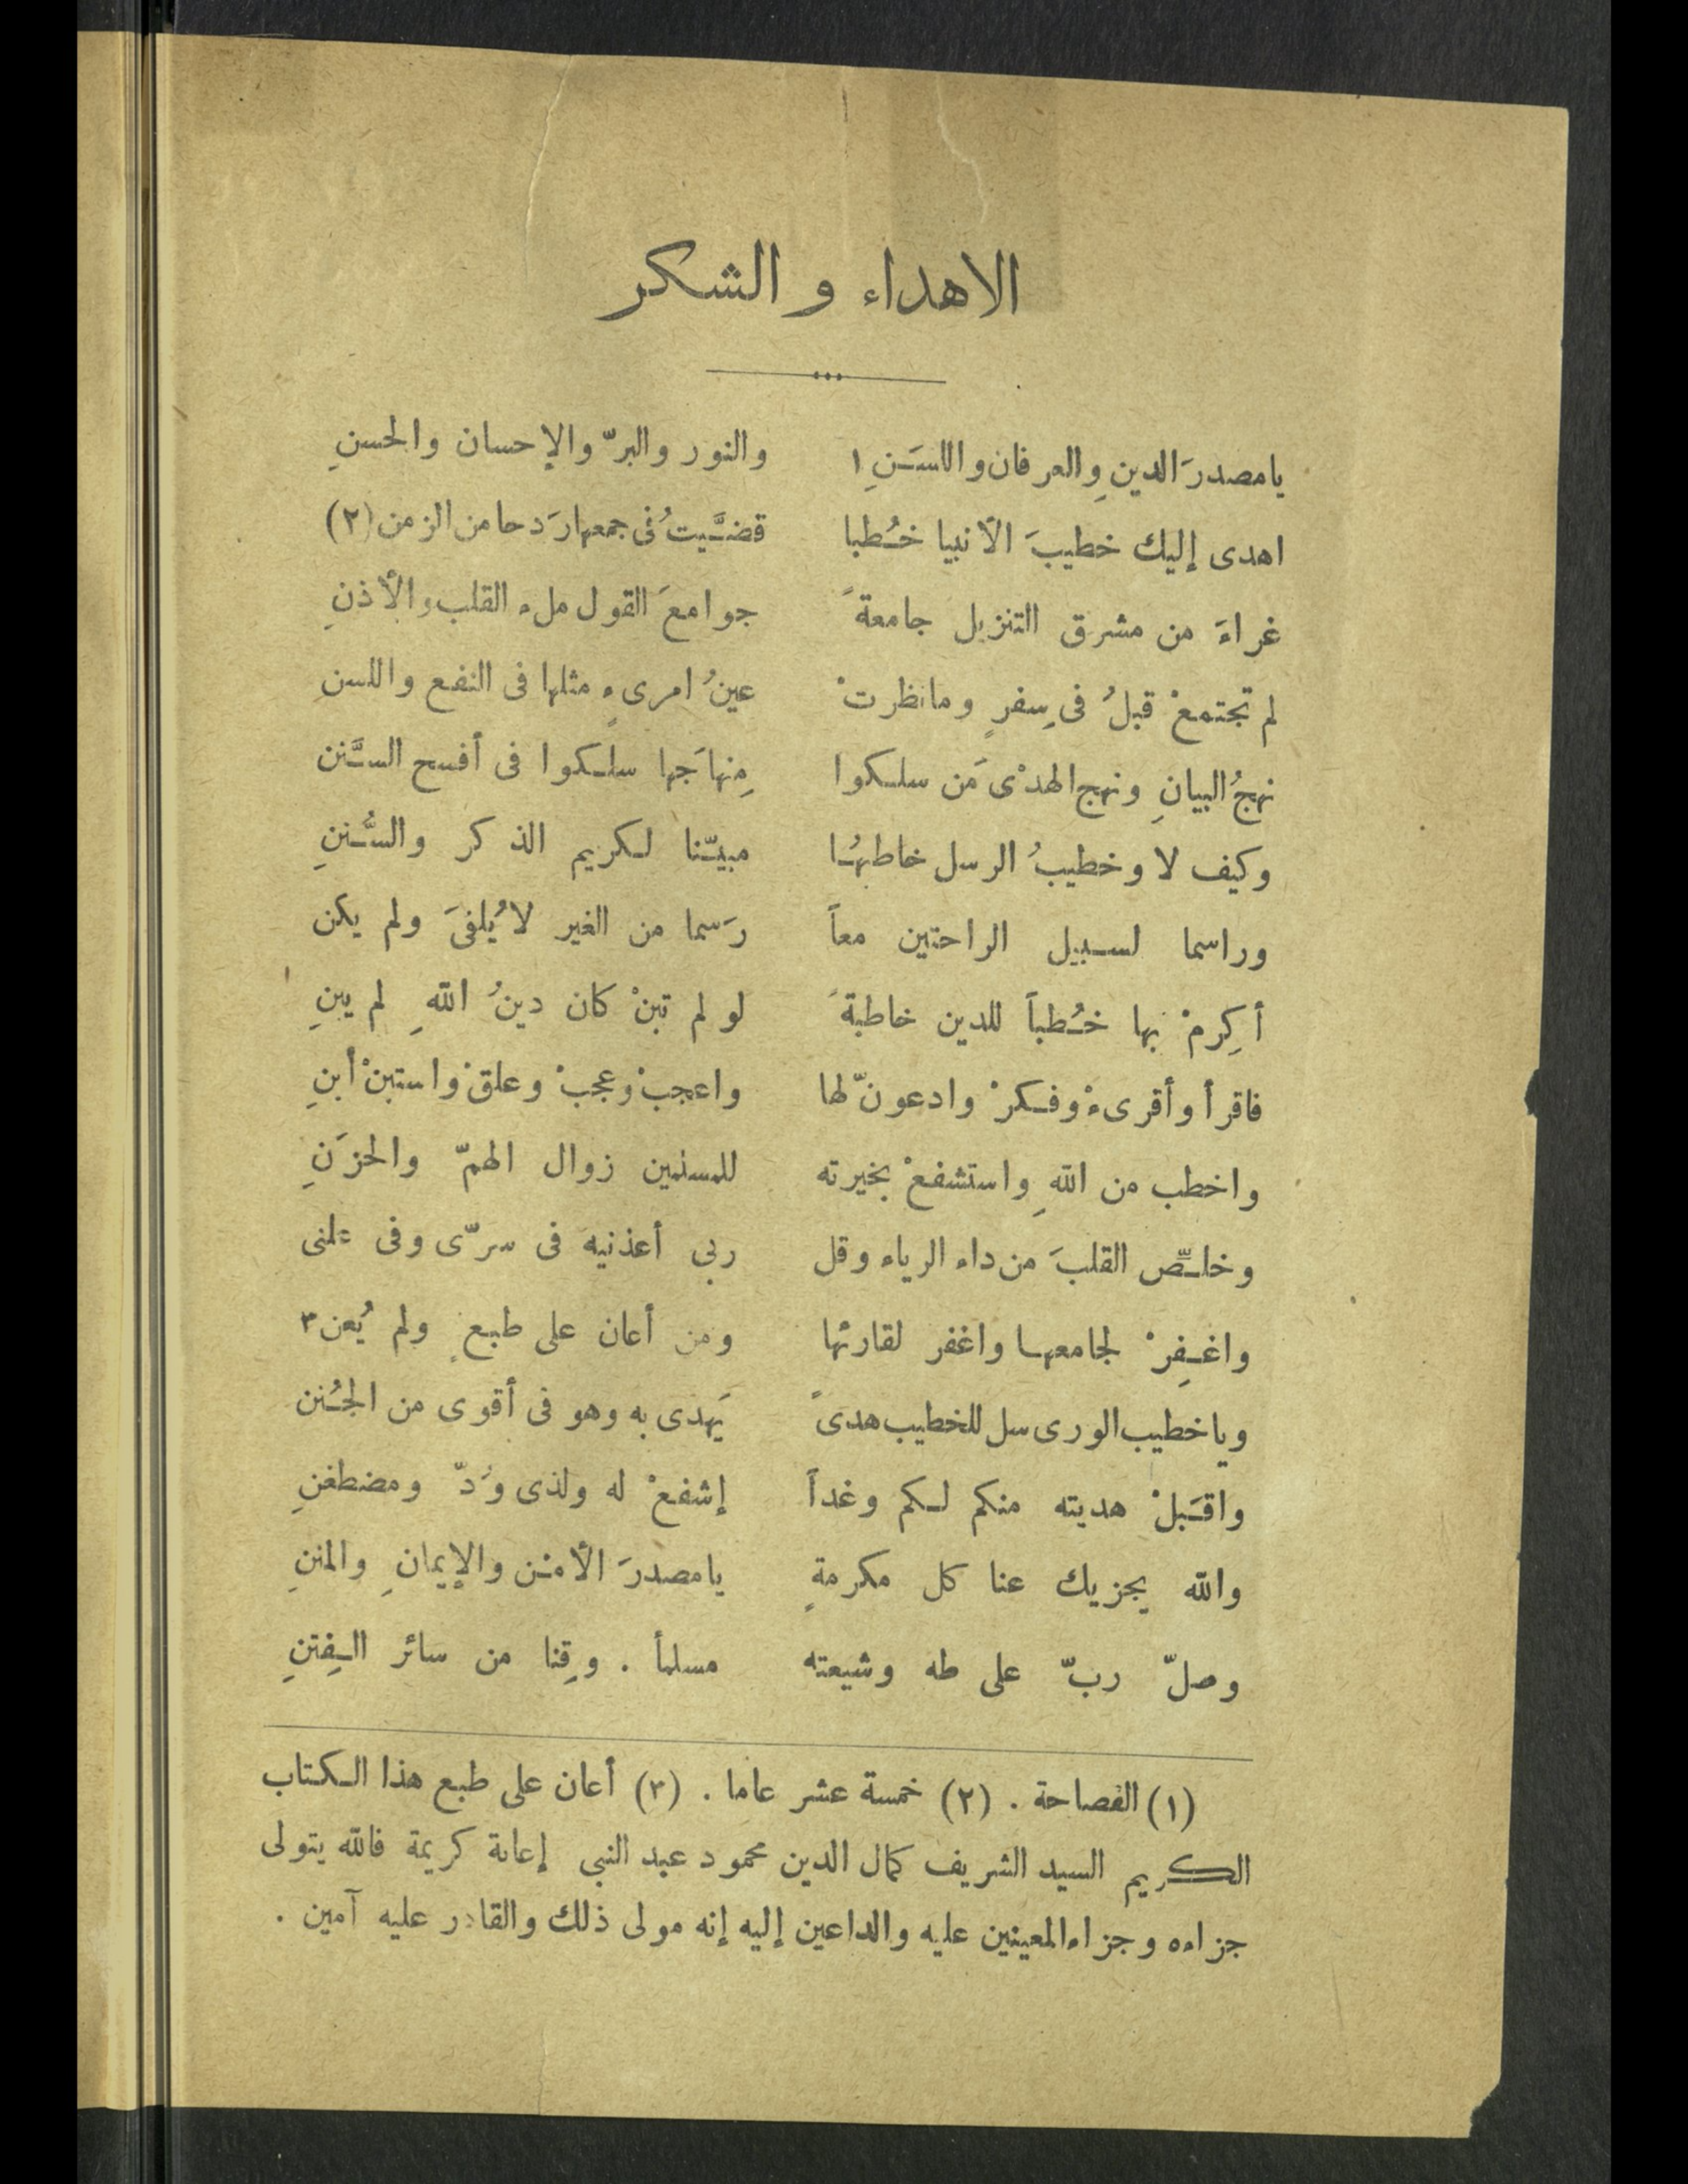 الاهداء و الشكر
يا مصدرَ الدينِ والعرفان واللسَنِ ١ والنور والبرّ والإحسان والحسنِ
اهدى إليك خطيبَ الأنبيا خُطبا قضَّيتُ فى جمعها رَدحا من الزمن (٢)
غراءَ من مشرق التنزيل جامعةً جوامعَ القول ملء القلب والأذنِ
لم تجتمعْ قبلُ فى سِفرٍ وما نظرتْ عينُ امرىءٍ مثلها فى النفع واللسن
نهجُ البيانِ ونهج الهدْى مَن سلكوا مِنهاجَها سلكوا فى أفسح السَّنن
وكيف لا وخطيبُ الرسل خاطبُها مبيّنا لكريم الذكر والسُّننِ
وراسما لسبيل الراحتين معاً رَسما من الغير لا يُلفىَ ولم يكن
أكرِمْ بها خُطباً للدين خاطبةً لو لم تبنْ كان دينُ اللهِ لم يبنِ
فاقرأ وأقرىءْ وفكرْ وادعونّ لها واعجبْ وعجبْ وعلقْ واستبنْ أبنِ
واخطب من اللهِ واستشفعْ بخيرته للمسلمين زوال الهمّ والحزَنِ
وخلِّص القلبَ من داء الرياء وقل ربى أعذنيه فى سرّى وفى علنى
واغفِرْ لجامعها واغفر لقارئها ومن أعان على طبعٍ ولم يُعن ٣
ويا خطيب الورى سل للخطيب هدىً يَهدى به وهو فى أقوى من الجُنن
واقبَلْ هديته منكم لكم وغداً إشفعْ له ولذى وُدّ ومضطغنِ
والله يجزيك عنا كل مكرمةٍ يا مصدرَ الأمْن والإيمانِ والمننِ
وصلّ ربّ على طه وشيعته مسلماً . وقِنا من سائر الفِتنِ
(١) الفصاحة . (٢) خمسة عشر عاما . (٣) أعان على طبع هذا الكتاب
الكريم السيد الشريف كمال الدين محمود عبد النبى إعانة كريمة فالله يتولى
جزاءه وجزاء المعينين عليه والداعين إليه إنه مولى ذلك والقادر عليه آمين .